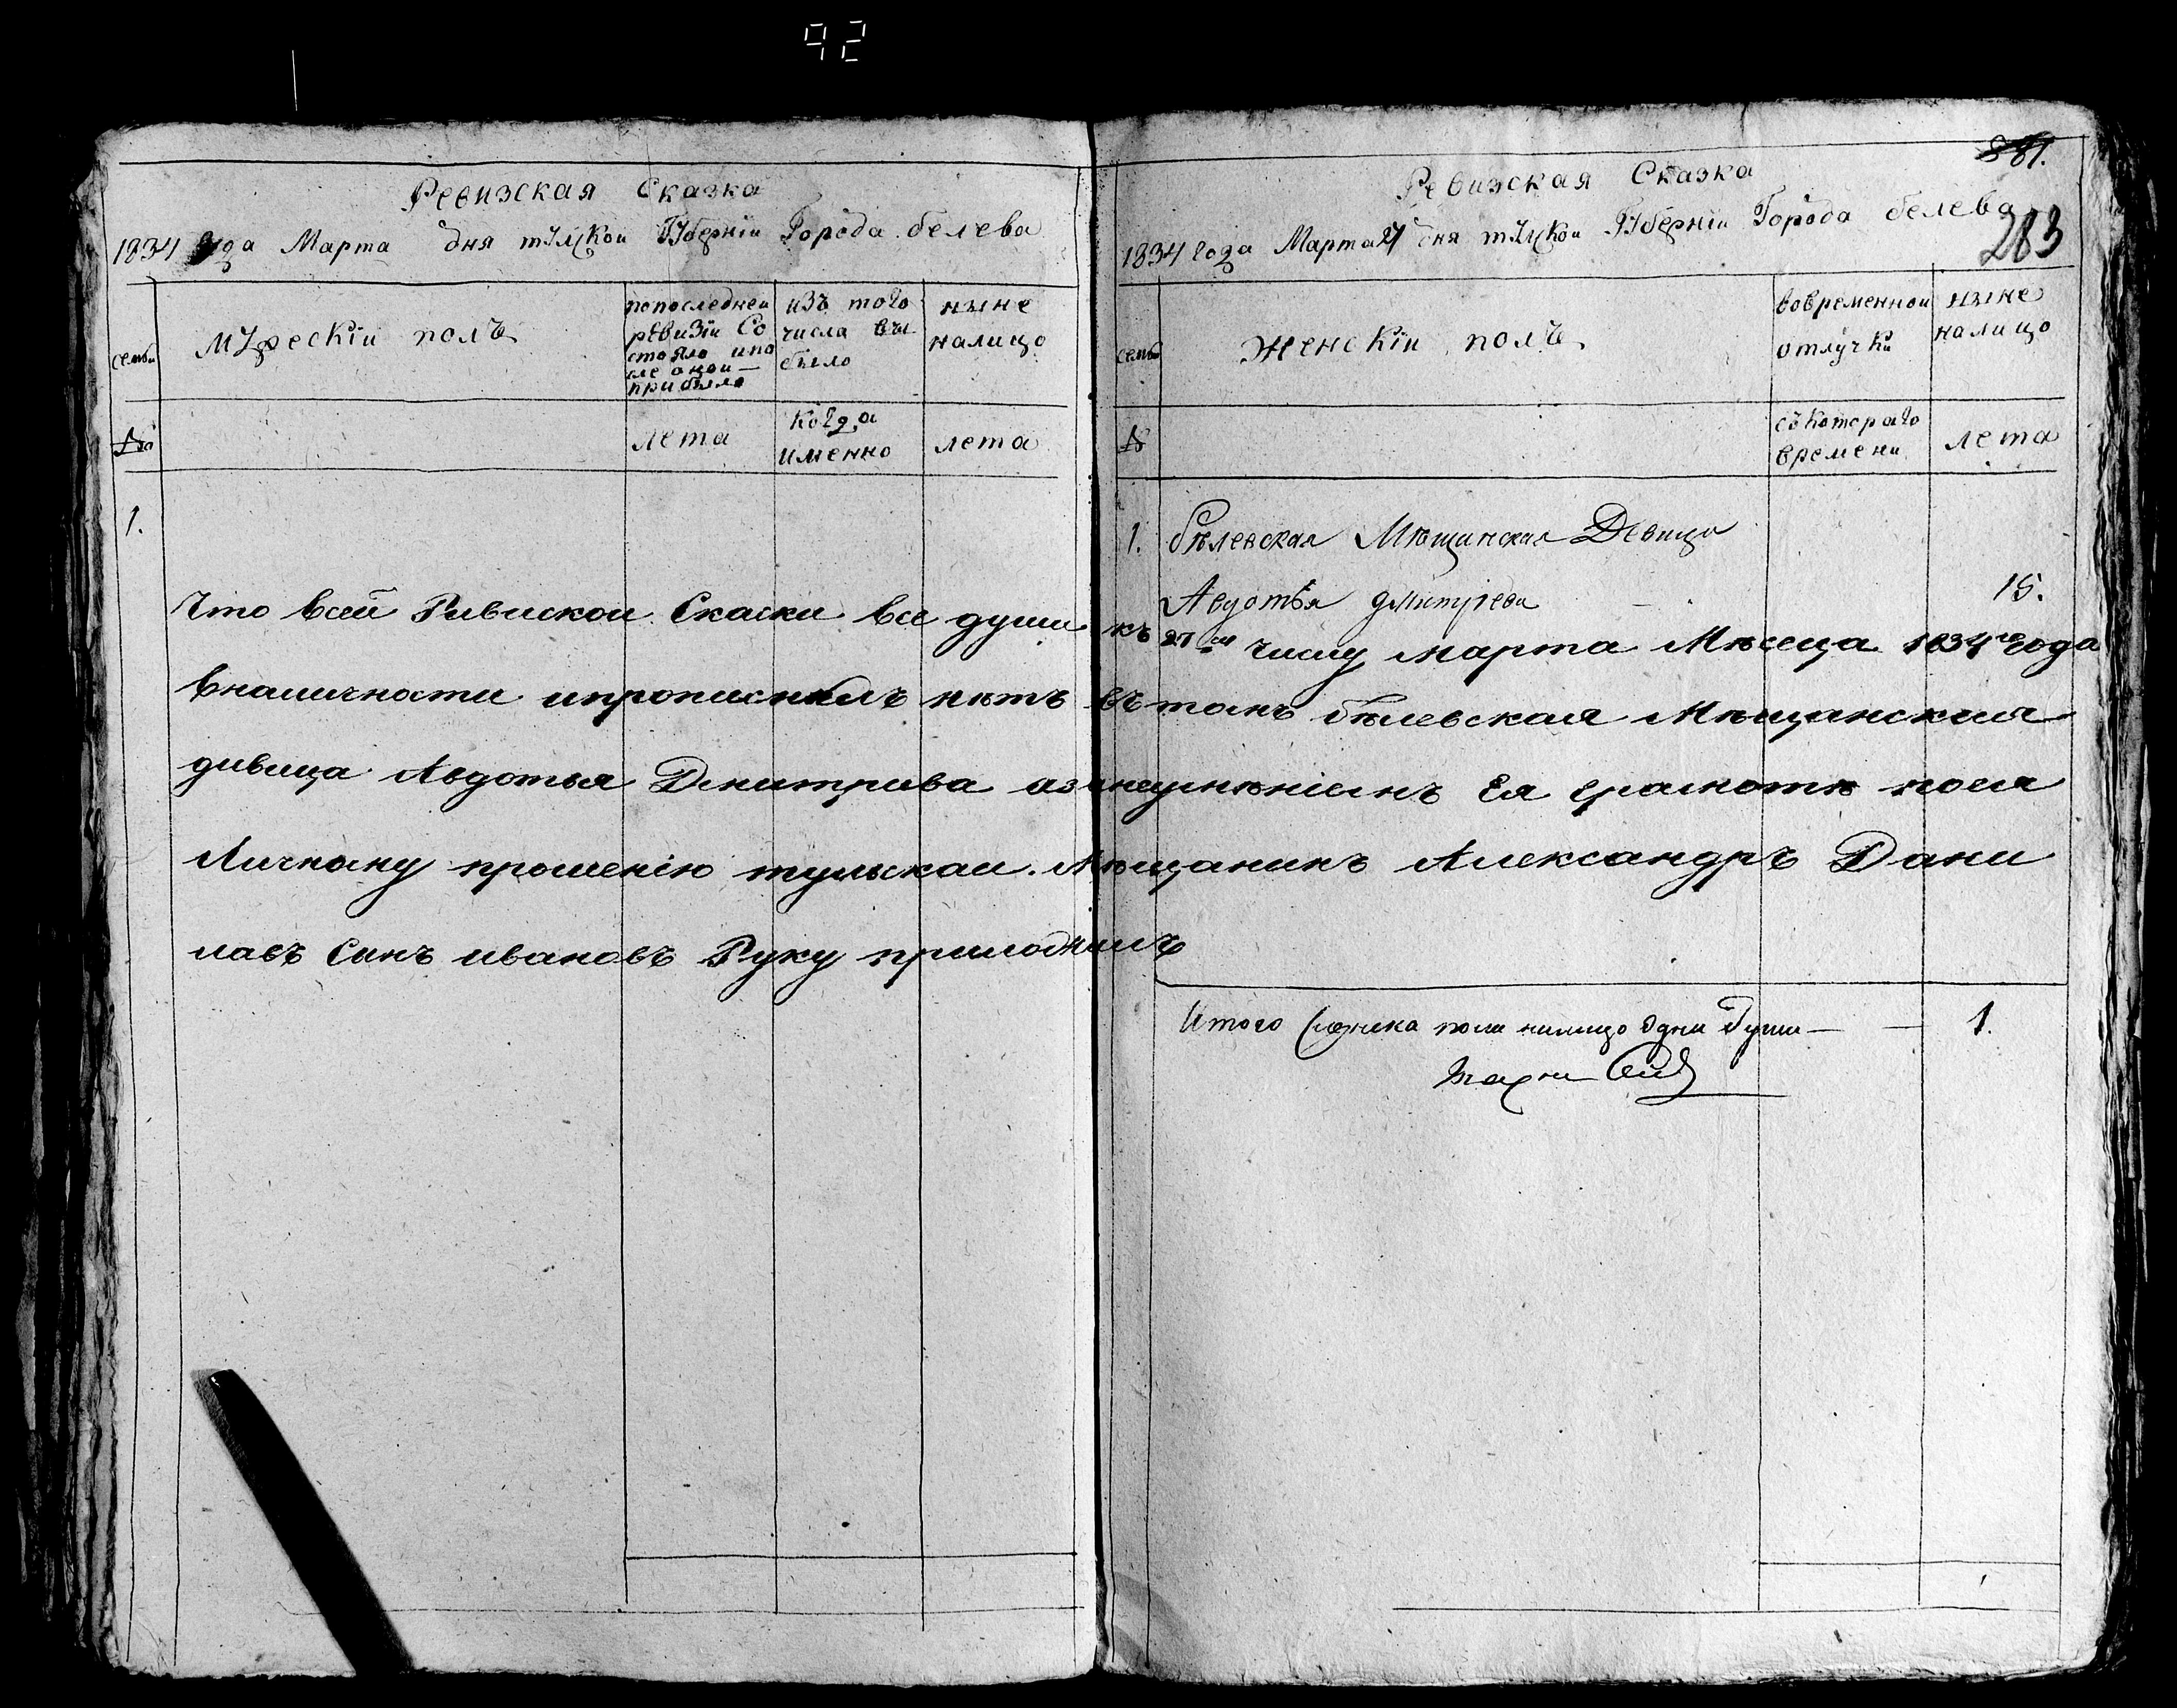 92
Ревизская Сказка
1834 года Марта дня тулской Губерніи Города белева
семьи
мужескіи полъ
попоследнеи
ревизіи Со
стояло ипо
сле онои
прибыло
изъ того
числа вы
было
ныне
налицо
№
лета
когда
именно
лета
1.
881.
Ревизская Сказка
1834 года Марта 27 дня тулской Губерніи Города белева
283
семьи
женскіи полъ
вовременнои
отлучки
ныне
налицо
№
съкотораго
времени
лета
1. бѣлевская Мѣщинская Девица
Авдотья дмитрева 15.
Что всей Ривиской Скаски все души къ 27му числу марта Мѣсеца 1834го года
вналичности ипрописныхъ нѣтъ вътомъ бѣлевская Мѣщанская
дивица Авдотья Дмитрива азанеумѣніемъ Ея грамотѣ поея
Личному прошенію тульскаи Мѣщанинъ Александръ Дани
лавъ Сынъ ивановъ Руку приложилъ
Итого женска пола налицо одна душа — — 1.